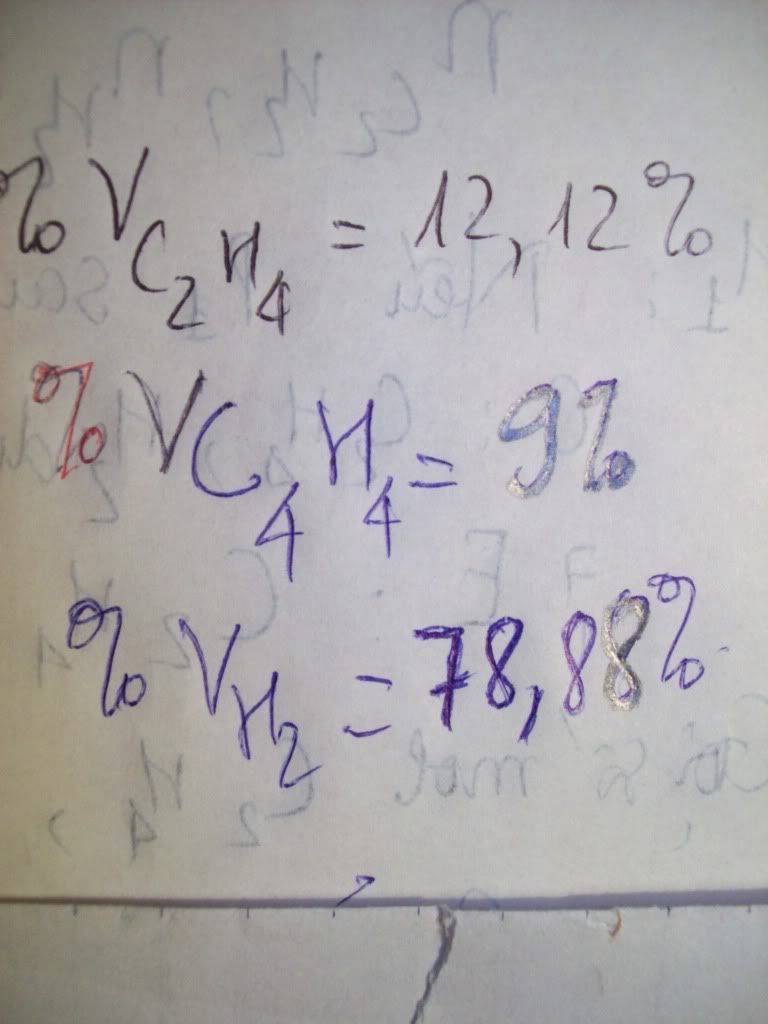 % V C₂H₄ = 12,12%
% V C₄H₄ = 9%
% V H₂ = 78,88%